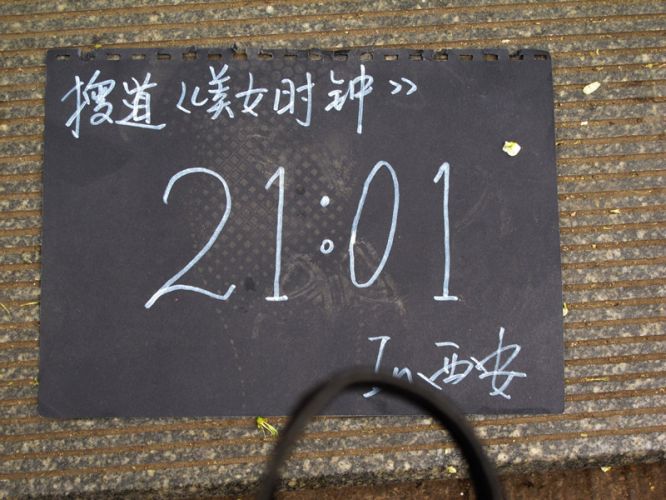 搜道《美女时钟》
21:01
In 西安